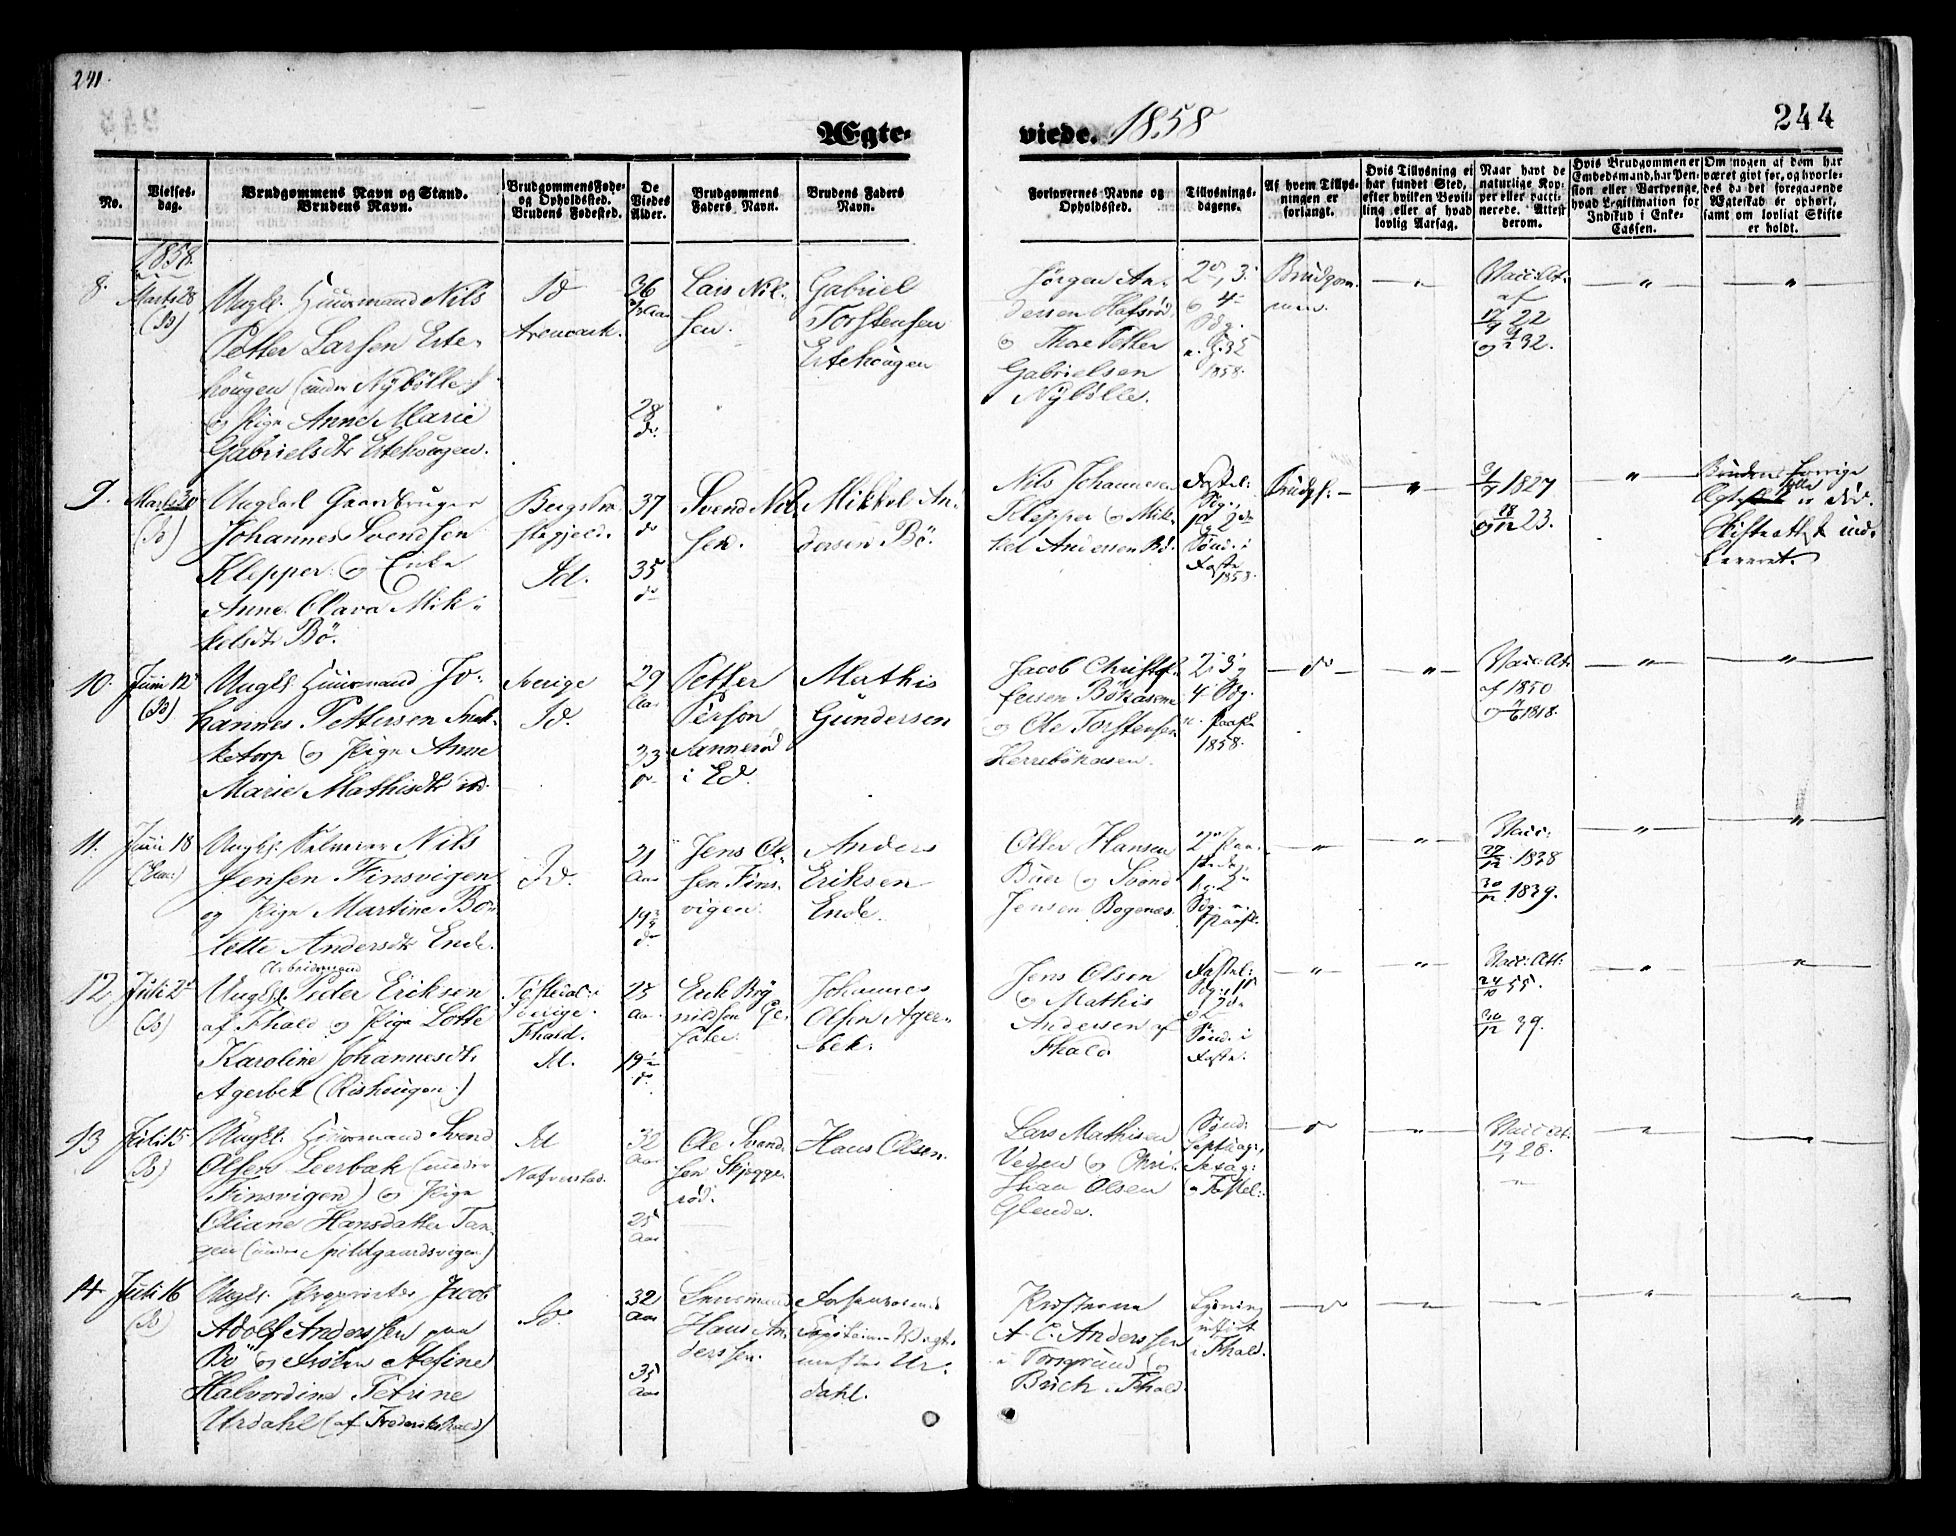 241.
Ægte-
viede. 1858
244
No.
Vielses-
dag.
Brudgommens Navn og Stand.
Brudens Navn.
Brudgommens Føde-
og Opholdsted.
Brudens Fødested.
De
Viedes
Alder.
Brudgommens
Faders Navn.
Brudens Faders
Navn.
Forlovernes Navne og
Opholdsted.
Tillysnings-
dagene.
Af hvem Tillys-
ningen er
forlangt.
Hvis Tillysning ei
har fundet Sted,
efter hvilken Bevil-
ling eller af hvad
lovlig Aarsag.
Naar havt de
naturlige Kop-
per eller vacci-
nerede. Attest
derom.
Hvis Brudgommen er
Embedsmand, har Pen-
sion eller Vartpenge,
hvad Legitimation for
Indskud i Enke-
Cassen.
Om nogen af dem har
været givt før, og hvorle-
des da det foregaaende
Ægteskab er ophørt,
samt om lovligt Skifte
er holdt.
1858.
8.
Marts 28
(Id)
Ungk. Huusmand Nils
Petter Larsen Erte-
hougen (under Nÿbölle)
og Pige Anne Marie
Gabrielsdtr Ertehougen.
Id
Aremark.
36
28
do
Lars Nil-
sen.
Gabriel
Torstensen
Ertehougen
Jørgen An-
dersen Hafsrød
og Thor Petter
Gabrielsen
Nÿbölle.
2den, 3.
og 4
Sdg.
1858.
Brudgom-
men.
Vacc. At.
af
17/9 22
og 32.
9.
Marts 30
(Id)
Ungkarl Gaardbruger
Johannes Svendsen
Klepper og Enke
Anne Olava Mik-
kelsdtr Bö.
Id.
37
do
35
do
Svend Nil-
sen.
Mikkel An-
dersen Bö.
Nils Johannesen
Klepper og Mik-
kel Andersen Bö.
Fastel:
Sdg.,
1 og 2den
Sønd. i
Faste
1858.
Brudg: -
3/7 1827
og 18/12 23.
Brudens forrige
Ægtefælle er død.
Skifteattest ind-
leveret.
10.
Juni 12
(Id)
Ungk. Huusmand Jo-
hannes Pettersen Snek-
ketorp og Pige Anne
Marie Mathisdtr ibd.
Sverige
Id.
29
Aar
33
do
Petter
Person
Sannerød
i Ed.
Mathis
Gundersen
Jacob Christof-
fersen Bökasene
og Ole Torstensen
Herrebökasen.
2, 3 og
4 Sdg.
e. Paaske
1858.
do
Vacc. At.
af 1850
og 1818.
11.
Juni 18
(Enn:)
Ungk. Nils
Jensen Finsvigen
og Pige Martine Bo-
lette Andersdtr Ende.
Id.
21
Aar
19 3/4
do
Jens Ol-
sen Fins-
vigen.
Anders
Eriksen
Ende.
Otter Hansen
Buer og Svend
Jensen Bogenes.
2den Paa-
skedag,
1 og 2
Sdg. e.
Paaske.
Vacc:
27/12 1838
30/12 1839.
12
Juli 2
(Id)
Arbeidsmand
Ungk. Peter Eriksen
af Fhald og Pige Lotte
Karoline Johannesdtr.
Agerbek (Rishougen.)
Sverige.
Fhald.
Id.
25
Aar
19 1/2
do
Erik Bry-
nildsen
Johannes
Olsen Ager-
bek.
Jens Olsen
og Mathis
Andersen af
Fhald
Fastel:
Sdg., 1
og 2
Sønd. i
Faste.
Vacc: Att:
24/10 55.
30/12 39.
13
Juli 15
(Id)
Ungk. Huusmand Svend
Olsen Leerbak (under
Finsvigen) og Pige
Oliane Hansdatter Tan-
gen (under Spildgaardsvigen)
Id
Nafverstad.
32
Aar
25
Aar
Ole Svend-
sen Skjegge-
rød.
Hans Olsen.
Lars Mathisen
Veden og Chri-
stian Olsen
Glende.
Sønd:
Septuag:,
Sexag:
og Fastel:
do
Vacc At.
19/1 26.
14
Juli 16
(Id)
Ungk. Proprietær Jacob
Adolf Anderssen paa
Bö og Frøken Stefine
Halvordine Petrine
Urdahl (af Frederikshald)
Id.
32
Aar
35
Aar
Hans An-
derssen.
Capitain Vagt-
mester Ur-
dahl.
A. C. Anderssen
i Torsgrund og
Buch i Fhald.
Lysning
udført
i Fhald.